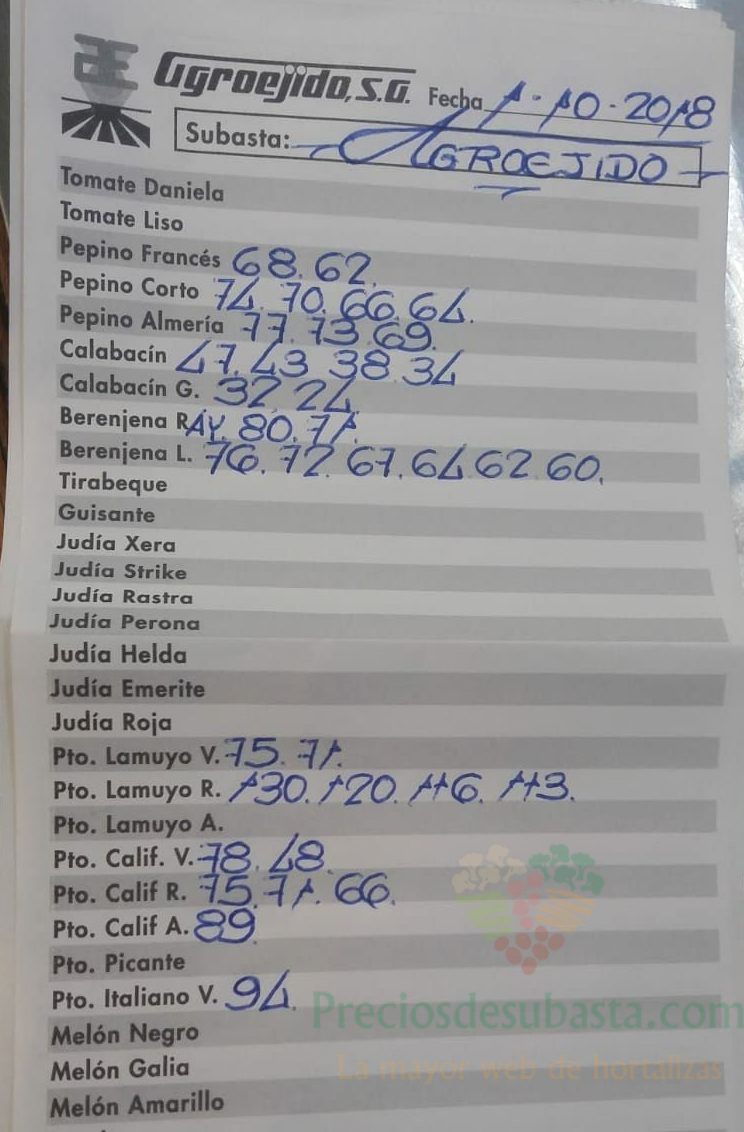 Agroejido, S.A. Fecha 1-10-2018
Subasta: AGROEJIDO
Tomate Daniela
Tomate Liso
Pepino Francés 68. 62.
Pepino Corto 74. 70. 66. 64.
Pepino Almería 77. 73. 69.
Calabacín 47. 43 38. 34
Calabacín G. 32. 24.
Berenjena RAY. 80. 71.
Berenjena L. 76. 72. 67. 64 62. 60.
Tirabeque
Guisante
Judía Xera
Judía Strike
Judía Rastra
Judía Perona
Judía Helda
Judía Emerite
Judía Roja
Pto. Lamuyo V. 75. 71.
Pto. Lamuyo R. 130. 120. 116. 113.
Pto. Lamuyo A.
Pto. Calif. V. 78. 48
Pto. Calif R. 75. 71. 66.
Pto. Calif A. 89.
Pto. Picante
Pto. Italiano V. 94.
Preciosdesubasta.com
Melón Negro
Melón Galia
La mayor web de hortalizas
Melón Amarillo